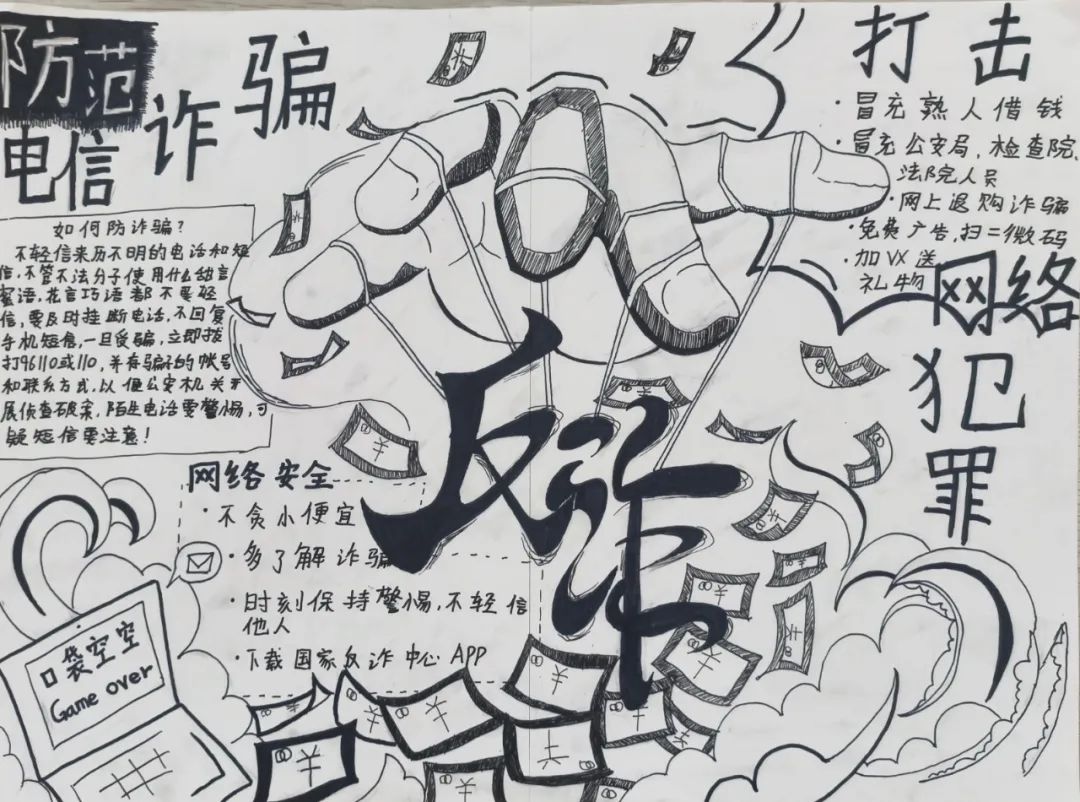 防范
诈骗
电信
如何防诈骗?
不轻信来历不明的电话和短
信,不管不法分子使用什么甜言
蜜语,花言巧语都不要轻
信,要及时挂断电话,不回复
手机短信,一旦受骗,立即拨
打96110或110,并存骗子的帐号
和联系方式,以便公安机关开
展侦查破案,陌生电话要警惕,可
疑短信需注意!
网络安全
·不贪小便宜
·多了解诈骗
·时刻保持警惕,不轻信
他人
·下载国家反诈中心APP
口袋空空
Game over
反诈
打击
·冒充熟人借钱
·冒充公安局,检查院,
法院人员
·网上退购诈骗
·免费广告,扫二微码
·加VX送
礼物
网络
犯
罪